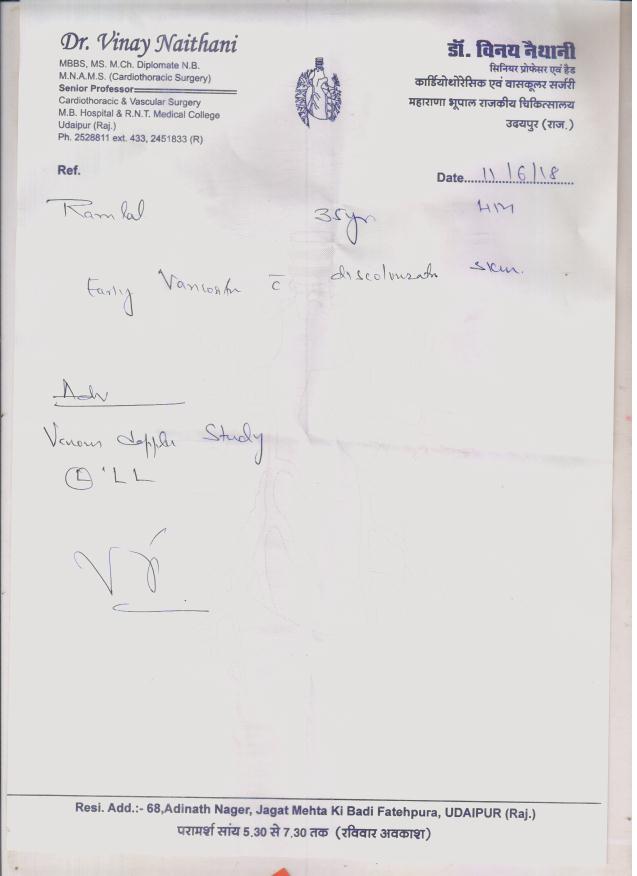 Dr. Vinay Naithani
MBBS, MS. M.Ch. Diplomate N.B.
M.N.A.M.S. (Cardiothoracic Surgery)
Senior Professor
Cardiothoracic & Vascular Surgery
M.B. Hospital & R.N.T. Medical College
Udaipur (Raj.)
Ph. 2528811 ext. 433, 2451833 (R)
डॉ. विनय नैथानी
सिनियर प्रोफेसर एवं हैड
कार्डियोथोरेसिक एवं वासकूलर सर्जरी
महाराणा भूपाल राजकीय चिकित्सालय
उदयपुर (राज.)
Ref.
Date......11/6/18
Ramlal 35yr
Early c̄ skin.
Adv
Venous doppler Study
Ⓛ LL
Resi. Add.:- 68,Adinath Nager, Jagat Mehta Ki Badi Fatehpura, UDAIPUR (Raj.)
परामर्श सांय 5.30 से 7.30 तक (रविवार अवकाश)